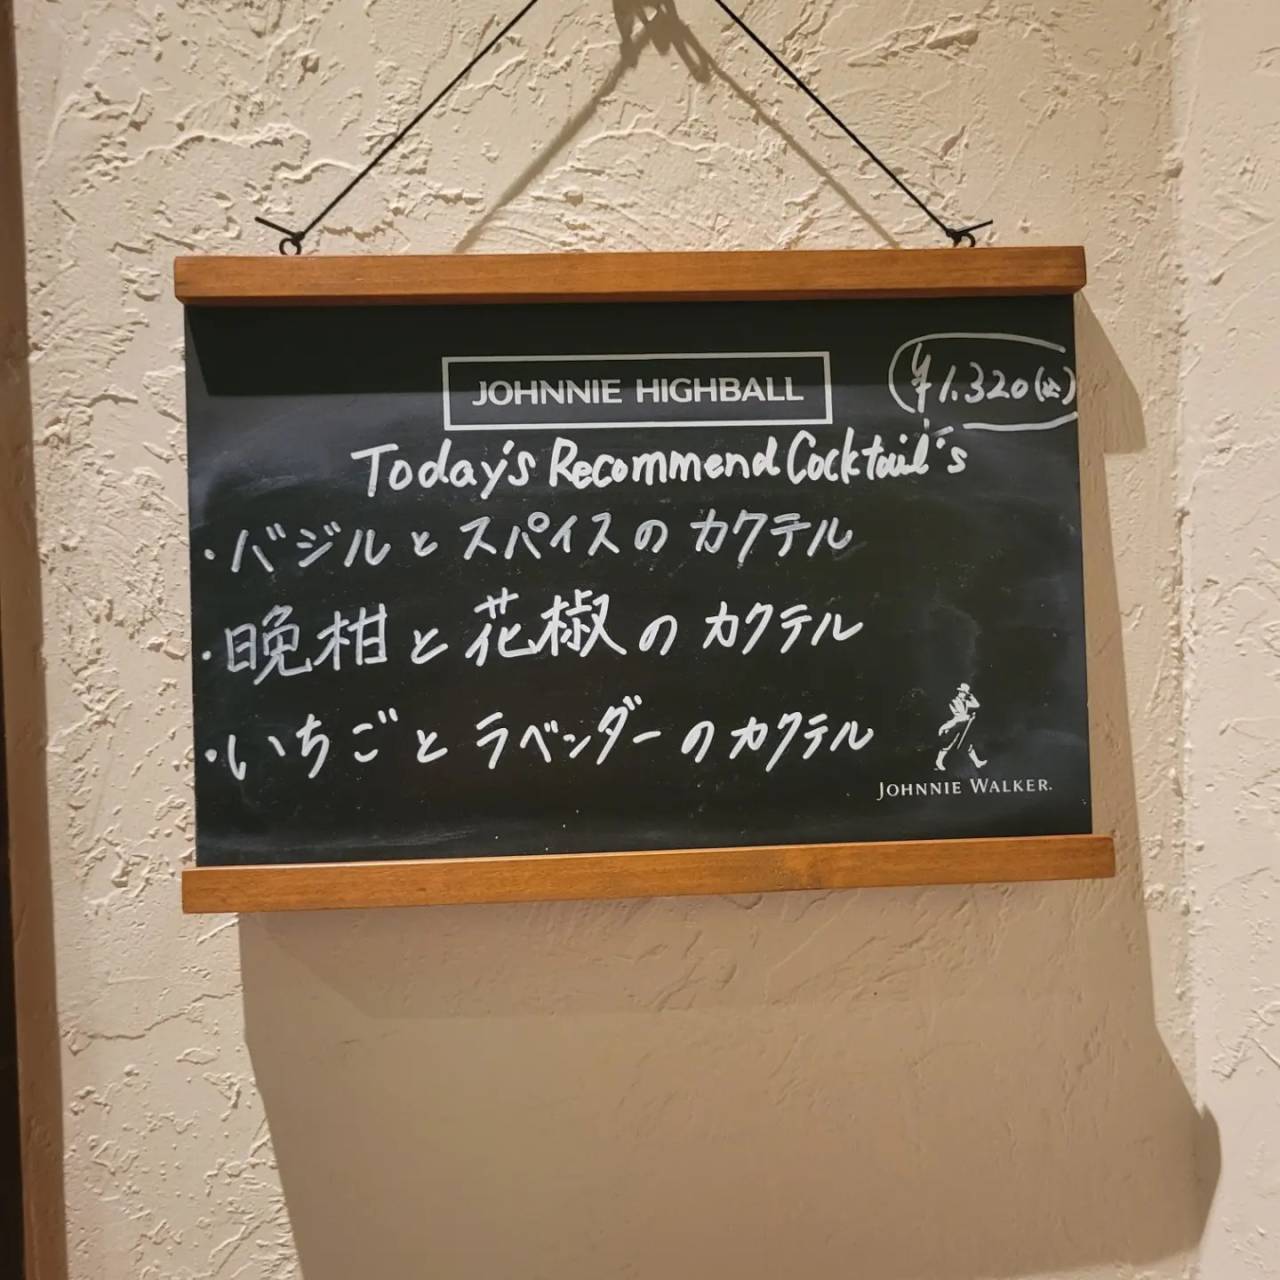 JOHNNIE HIGHBALL
¥1.320(込)
Today's Recommend Cocktail's
・バジルとスパイスのカクテル
・晩柑と花椒のカクテル
・いちごとラベンダーのカクテル
JOHNNIE WALKER.